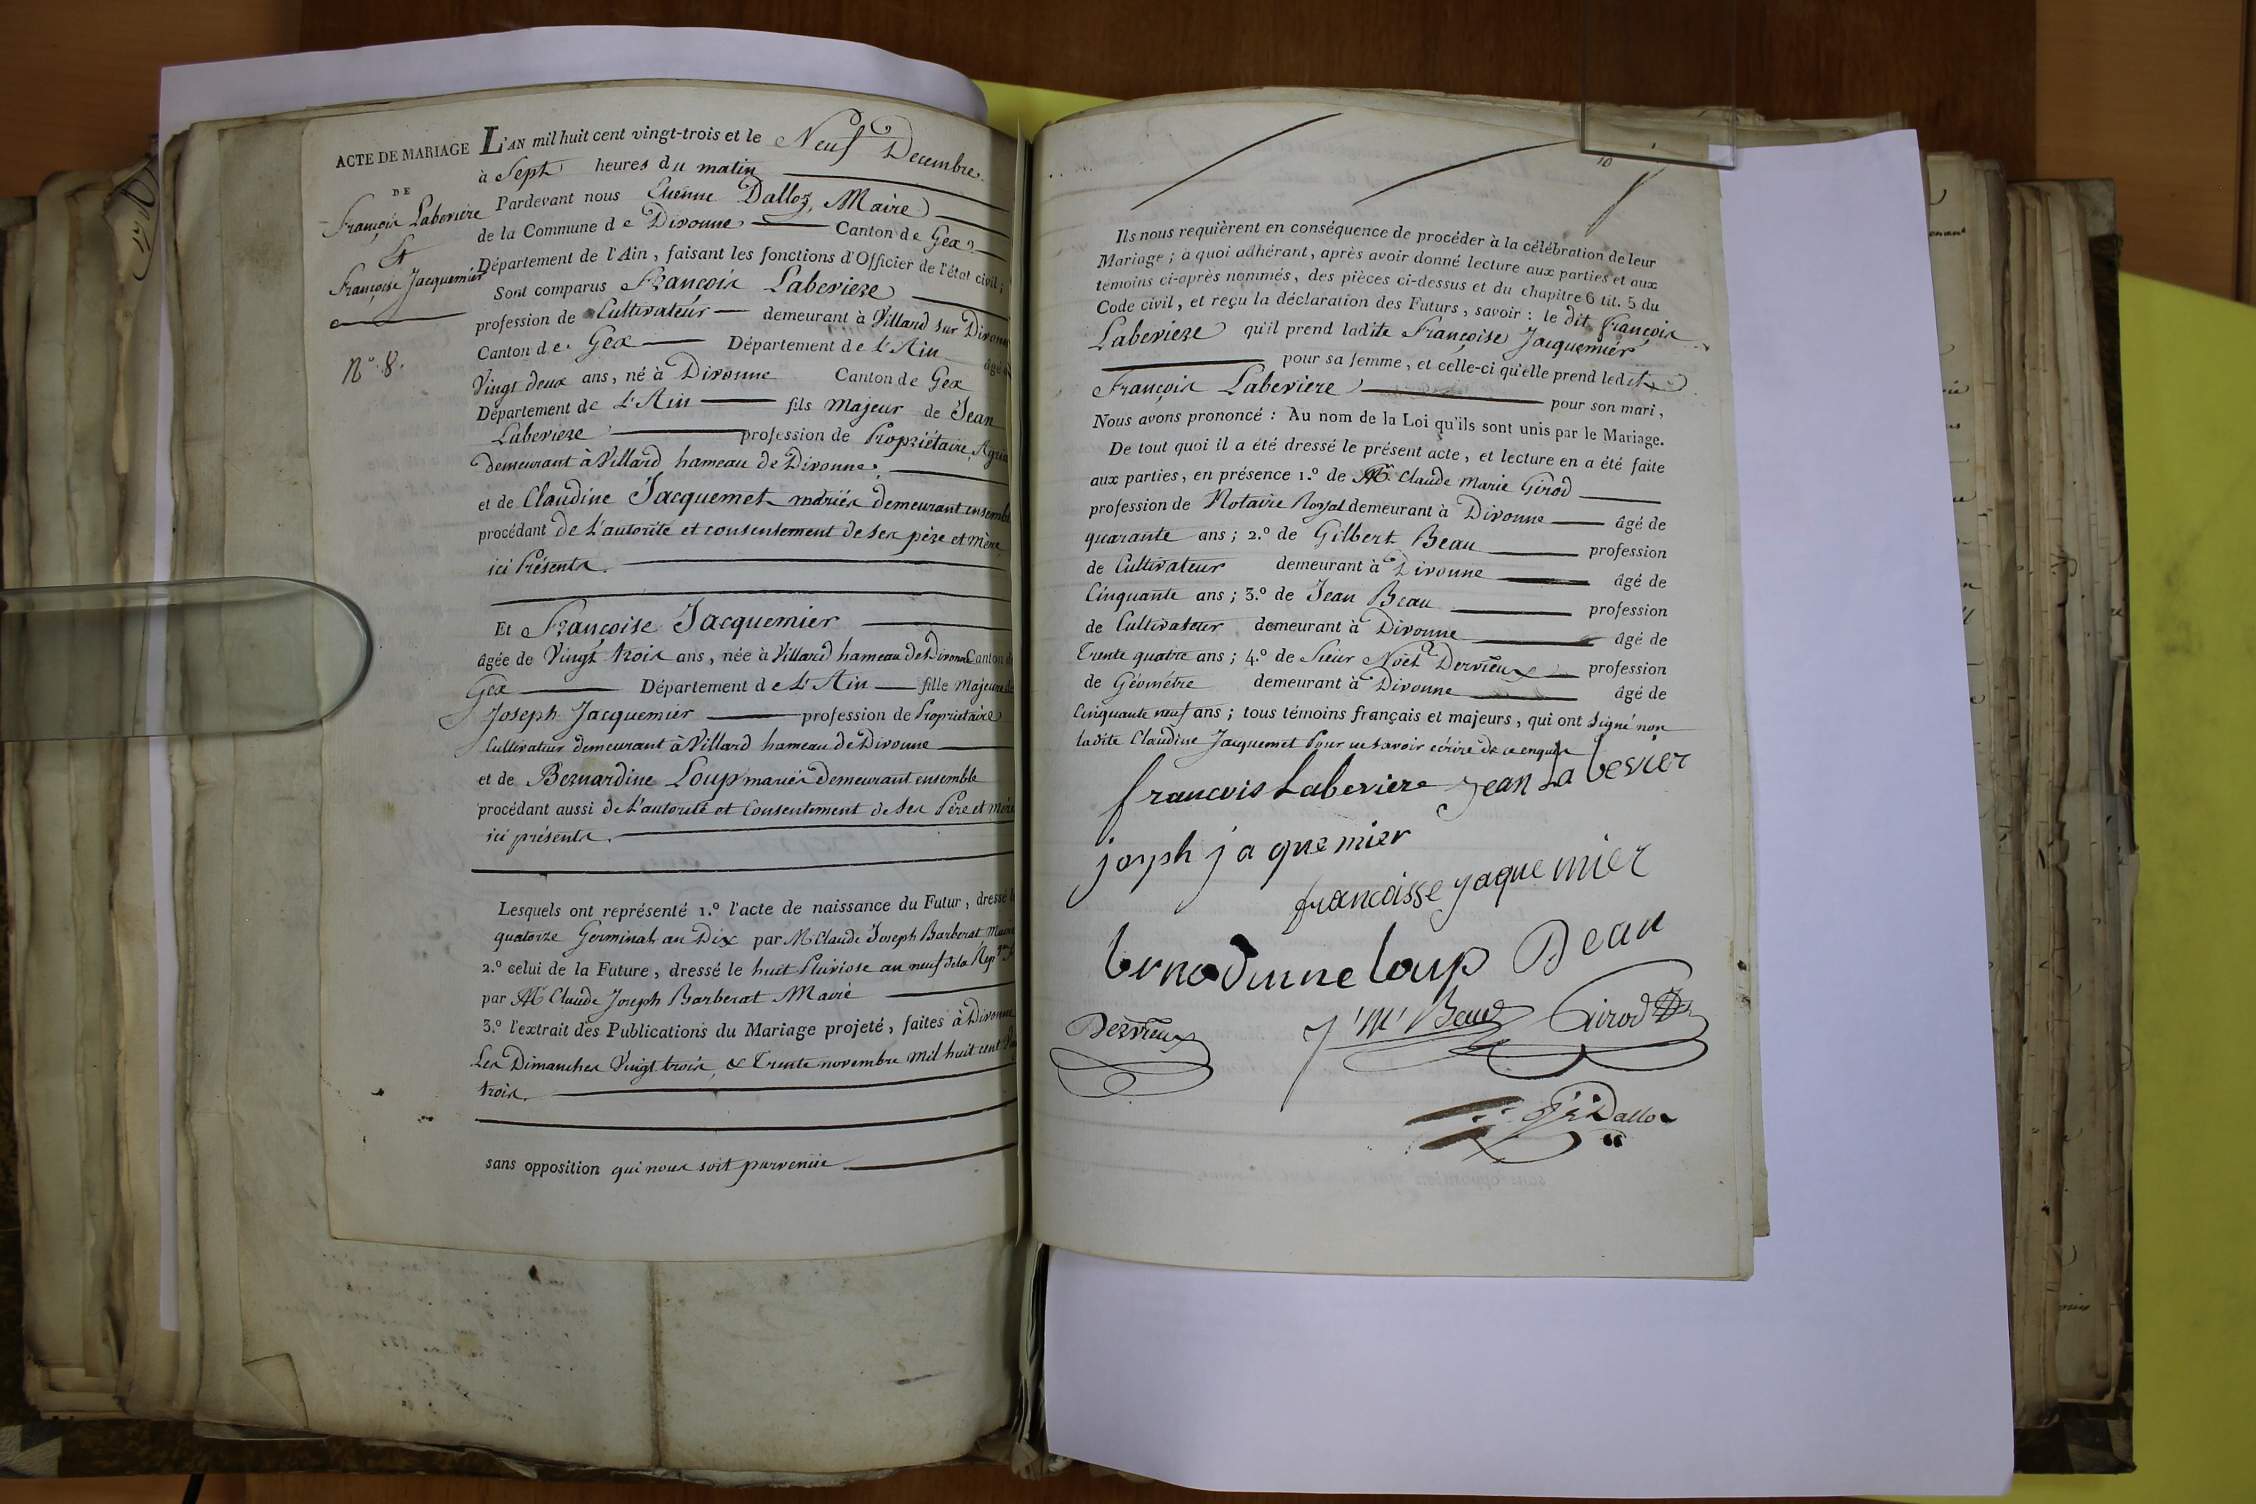 ACTE DE MARIAGE
DE
François Laberiere
Et
Françoise Jacquemier
N° 8.
L'AN mil huit cent vingt-trois et le Neuf Decembre
à Sept heures du matin
Pardevant nous Etienne Dalloz, Maire
de la Commune de Divonne Canton de Gex
Département de l'Ain, faisant les fonctions d'Officier de l'état civil;
Sont comparus François Laberiere
profession de Cultivateur demeurant à Villard sur Divonne
Canton de Gex Département de L'Ain âgé
Vingt deux ans, né à Divonne Canton de Gex
Département de L'Ain fils Majeur de Jean
Laberiere profession de Propriétaire,
demeurant à Villard hameau de Divonne
et de Claudine Jacquemet mariés demeurant ensemble
procédant de L'autorité et consentement de ses père et mère
ici Présents.
Et Françoise Jacquemier
âgée de Vingt trois ans, née à Villard hameau de Divonne Canton de
Gex Département de L'Ain fille Majeure de
Joseph Jacquemier profession de Propriétaire
Cultivateur demeurant à Villard hameau de Divonne
et de Bernardine Loup mariés demeurant ensemble
procédant aussi de L'autorité et Consentement de ses Père et mère
ici présents.
Lesquels ont représenté 1.° l'acte de naissance du Futur, dressé le
quatorze Germinal an Dix par Mr Claude Joseph Barberat Maire
2.° celui de la Future, dressé le huit Pluviose an neuf de la
par Mr Claude Joseph Barberat Maire
3.° l'extrait des Publications du Mariage projeté, faites à Divonne
Les Dimanches Vingt trois, & Trente novembre mil huit cent
trois.
sans opposition qui nous soit parvenüe
10
Ils nous requièrent en conséquence de procéder à la célébration de leur
Mariage; à quoi adhérant, après avoir donné lecture aux parties et aux
témoins ci-après nommés, des pièces ci-dessus et du chapitre 6 tit. 5 du
Code civil, et reçu la déclaration des Futurs, savoir: le dit François
Laberiere qu'il prend ladite Françoise Jacquemier
pour sa femme, et celle-ci qu'elle prend ledit
François Laberiere pour son mari,
Nous avons prononcé: Au nom de la Loi qu'ils sont unis par le Mariage.
De tout quoi il a été dressé le présent acte, et lecture en a été faite
aux parties, en présence 1.° de Mr. Claude Marie Girod
profession de Notaire Royal demeurant à Divonne âgé de
quarante ans; 2.° de Gilbert Beau profession
de Cultivateur demeurant à Divonne âgé de
Cinquante ans; 3.° de Jean Beau profession
de Cultivateur demeurant à Divonne âgé de
Trente quatre ans; 4.° de Sieur Noël Dervieux profession
de Géométre demeurant à Divonne âgé de
Cinquante neuf ans; tous témoins français et majeurs, qui ont signé non
ladite Claudine Jacquemet Pour ne savoir écrire de ce enquise
francois Laberiere Jean Laberier
joseph jaquemier
francoisse jaquemier
bernodinne loup Beau
Dervieux J M Beau Girod
Dalloz